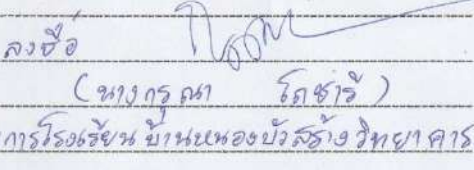 ลงชื่อ
(นางกรุณา โถชารี)
การโรงเรียนบ้านหนองบัวสร้างวิทยาคาร